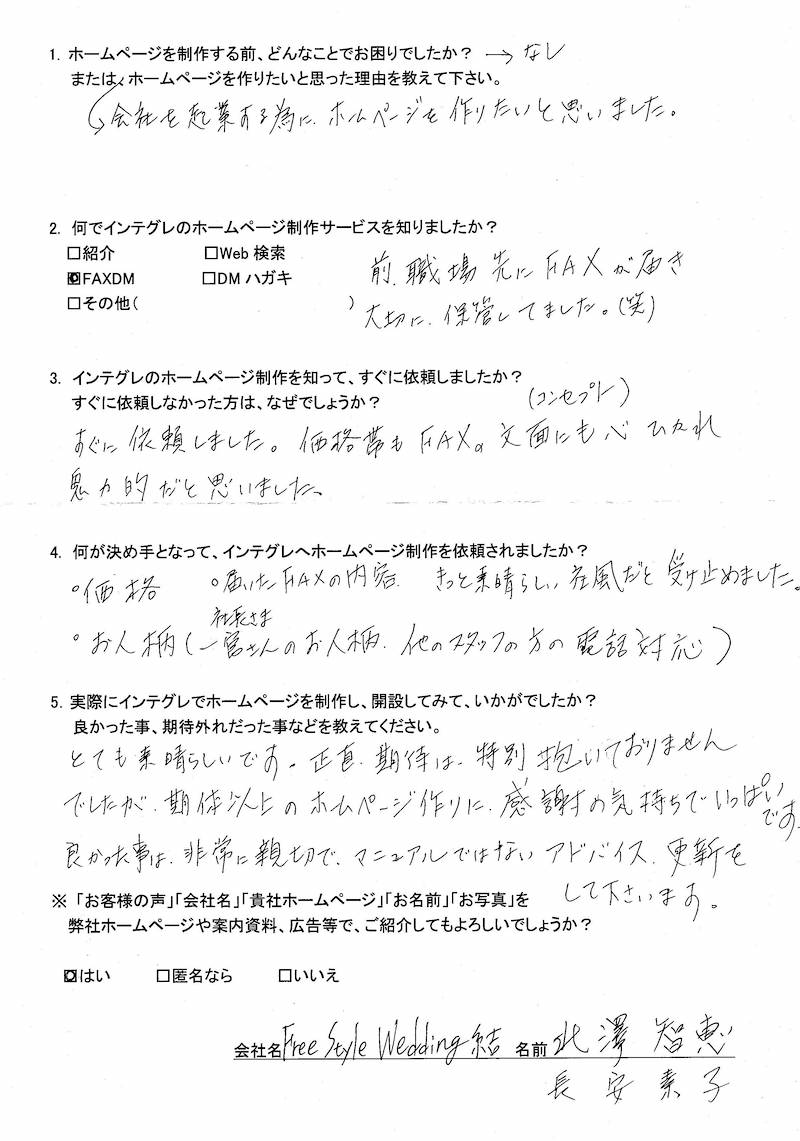 1. ホームページを制作する前、どんなことでお困りでしたか？ → なし
または、ホームページを作りたいと思った理由を教えて下さい。
会社を起業する為に、ホームページを作りたいと思いました。
2. 何でインテグレのホームページ制作サービスを知りましたか？
□紹介 □Web 検索
☑FAXDM □DM ハガキ
□その他( )
前、職場先にFAXが届き
大切に、保管してました。(笑)
3. インテグレのホームページ制作を知って、すぐに依頼しましたか？
すぐに依頼しなかった方は、なぜでしょうか？
(コンセプト)
すぐに依頼しました。価格帯もFAXの文面にも心ひかれ
魅力的だと思いました。
4. 何が決め手となって、インテグレへホームページ制作を依頼されましたか？
・価格 ・届いたFAXの内容、きっと素晴らしい社風だと受け止めました。
社長さま
・お人柄(一宮さんのお人柄、他のスタッフの方の電話対応)
5. 実際にインテグレでホームページを制作し、開設してみて、いかがでしたか？
良かった事、期待外れだった事などを教えてください。
とても素晴らしいです。正直、期待は、特別抱いておりません
でしたが、期待以上のホームページ作りに、感謝の気持ちでいっぱいです。
良かった事は、非常に親切で、マニュアルではないアドバイス、更新を
して下さいます。
※「お客様の声」「会社名」「貴社ホームページ」「お名前」「お写真」を
弊社ホームページや案内資料、広告等で、ご紹介してもよろしいでしょうか？
☑はい □匿名なら □いいえ
会社名 Free Style Wedding 結 名前 北澤 智恵
長安 素子